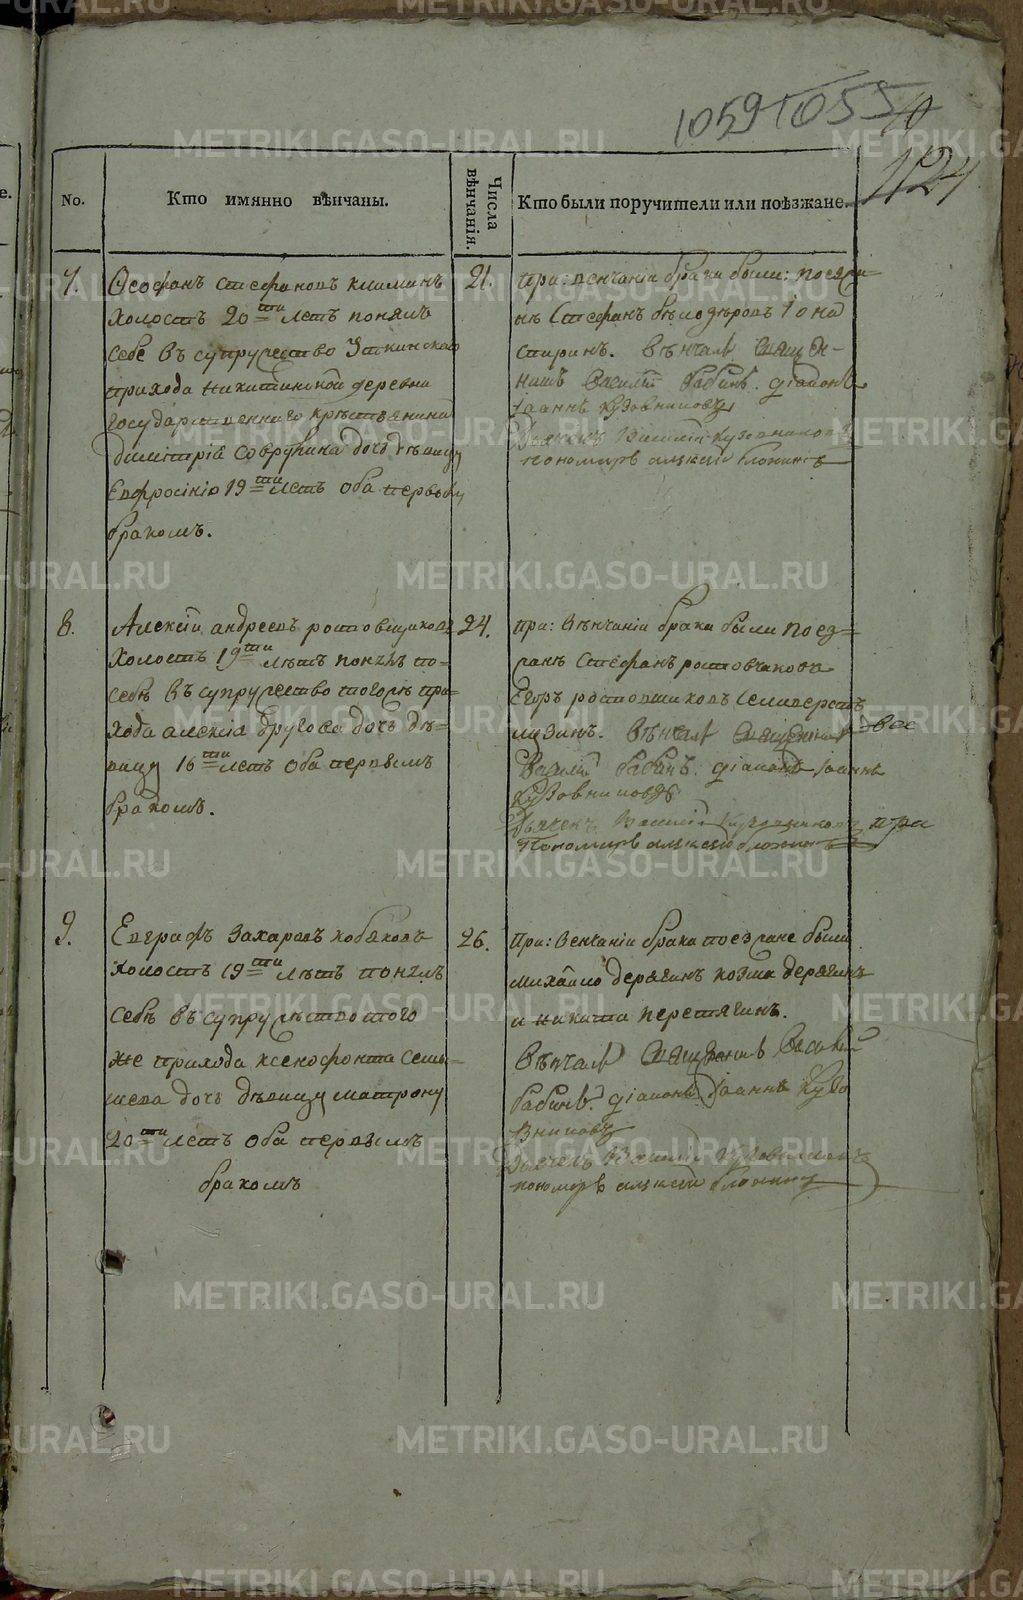 1059 1055 10
424
No.
Кто имянно вѣнчаны.
Числа вѣнчанія.
Кто были поручители или поѣзжане.
7.
Ѳеофанъ стефановъ климинъ
холостъ 20ти летъ понялъ
себе въ супружество Уткинскаго
прихода никитинской деревни
государственнаго крестьянина
Димитрія дочь девицу
Евфросінію 19ти летъ оба первымъ
бракомъ.
21.
При: венчаніи брака были: поезжа-
нѣ Стефанъ Іона
Вѣнчалъ Священ-
никъ Василій Бабинъ. діаконъ
Іоаннъ Кузовниковъ
Дьячекъ Василій Кузовниковъ
пономарь алексій
8.
Алексій андреевъ ростовщиковъ
холостъ 19ти лѣтъ понялъ по-
себѣ въ супружество тогожъ при-
хода алексія дочь дѣ-
вицу 16ти летъ оба первымъ
бракомъ.
24.
при: Вѣнчаніи брака были поез-
жанѣ Стефанъ
Егоръ ростовщиковъ Селиверстъ
лузинъ. Вѣнчалъ Священникъ
Василій Бабинъ. діаконъ Іоаннъ
Кузовниковъ
Дьячекъ Василій Кузовниковъ
Пономарь алексій
9.
Евграфъ Захаровъ кобяковъ
холостъ 19ти лѣтъ понялъ
себѣ въ супружество того
же прихода ксенофонта
дочь дѣвицу матрону
20ти летъ оба первымъ
бракомъ
26.
При: Венчаніи брака поезжане были
михайло дерягинъ козма дерягинъ
и никита перетягинъ.
Вѣнчалъ Священникъ Василій
Бабинъ. діаконъ Іоаннъ Кузо
вниковъ
Дьячекъ Василій Кузовниковъ
пономарь алексій
METRIKI.GASO-URAL.RU